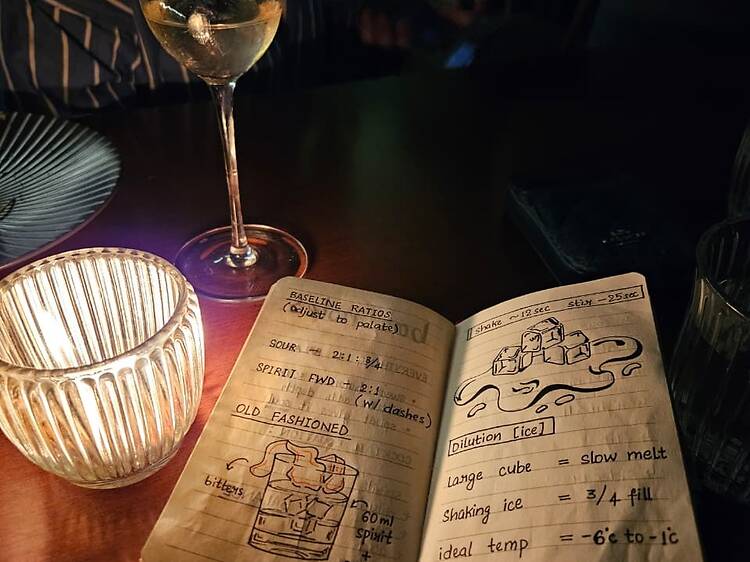 BASELINE RATIOS
(adjust to palate)
SOUR → 2:1:3/4
SPIRIT FWD → 2:1
(w/ dashes)
OLD FASHIONED
bitters
60ml
spirit
+
shake ~12sec stir ~25sec
Dilution [ice]
large cube = slow melt
Shaking ice = 3/4 fill
ideal temp = -6°c to -1°c